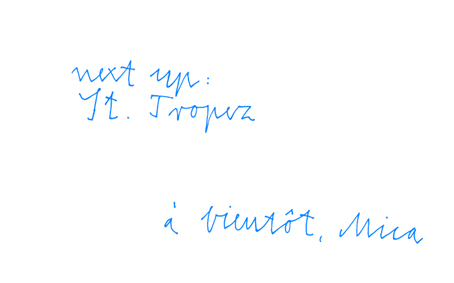 next up:
St. Tropez
à bientôt, Mica